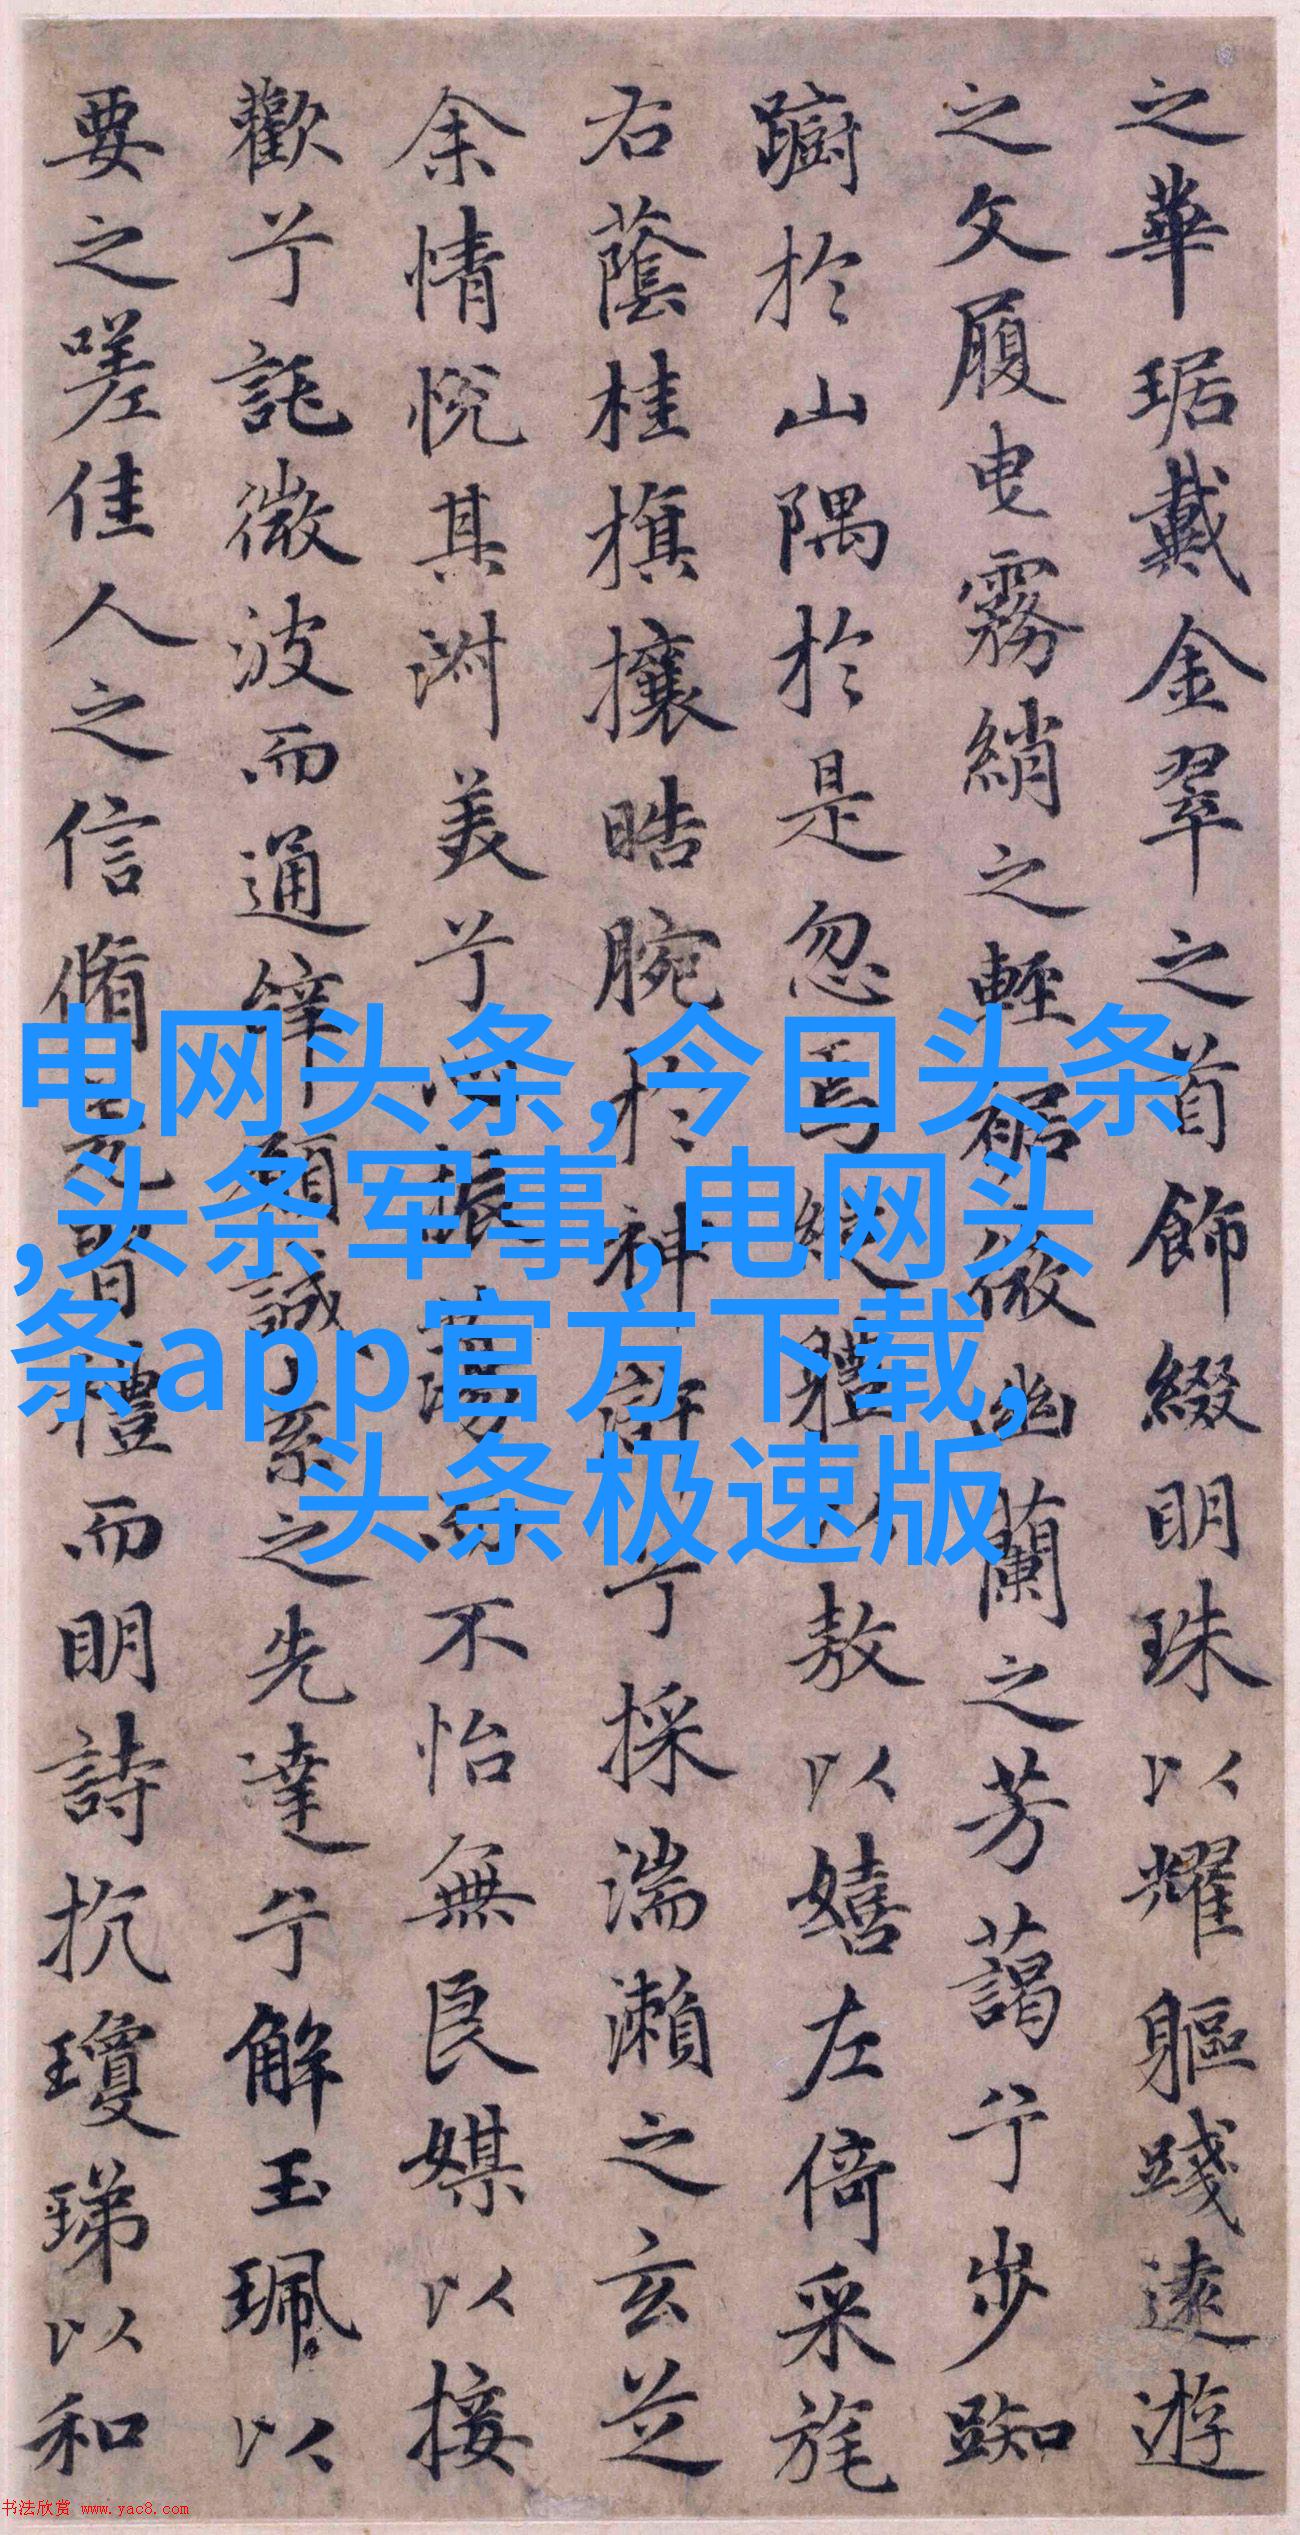 之華琚戴金翠之首飾綴明珠以耀軀踐遠遊
之文履曳霧綃之輕裾微幽蘭之芳藹兮步踟
蹰於山隅於是忽焉縱體以敖以嬉左倚采旄
右蔭桂旗攘晧腕於神滸兮採湍瀨之玄芝
余情悅其淑美兮心振蕩而不怡無良媒以接
歡兮託微波而通辭願誠素之先達兮解玉珮以
要之嗟佳人之信脩羌習禮而明詩抗瓊珶以和
电网头条,今日头条
,头条军事,电网头
条app官方下载,
头条极速版
书法欣赏 www.yac8.com